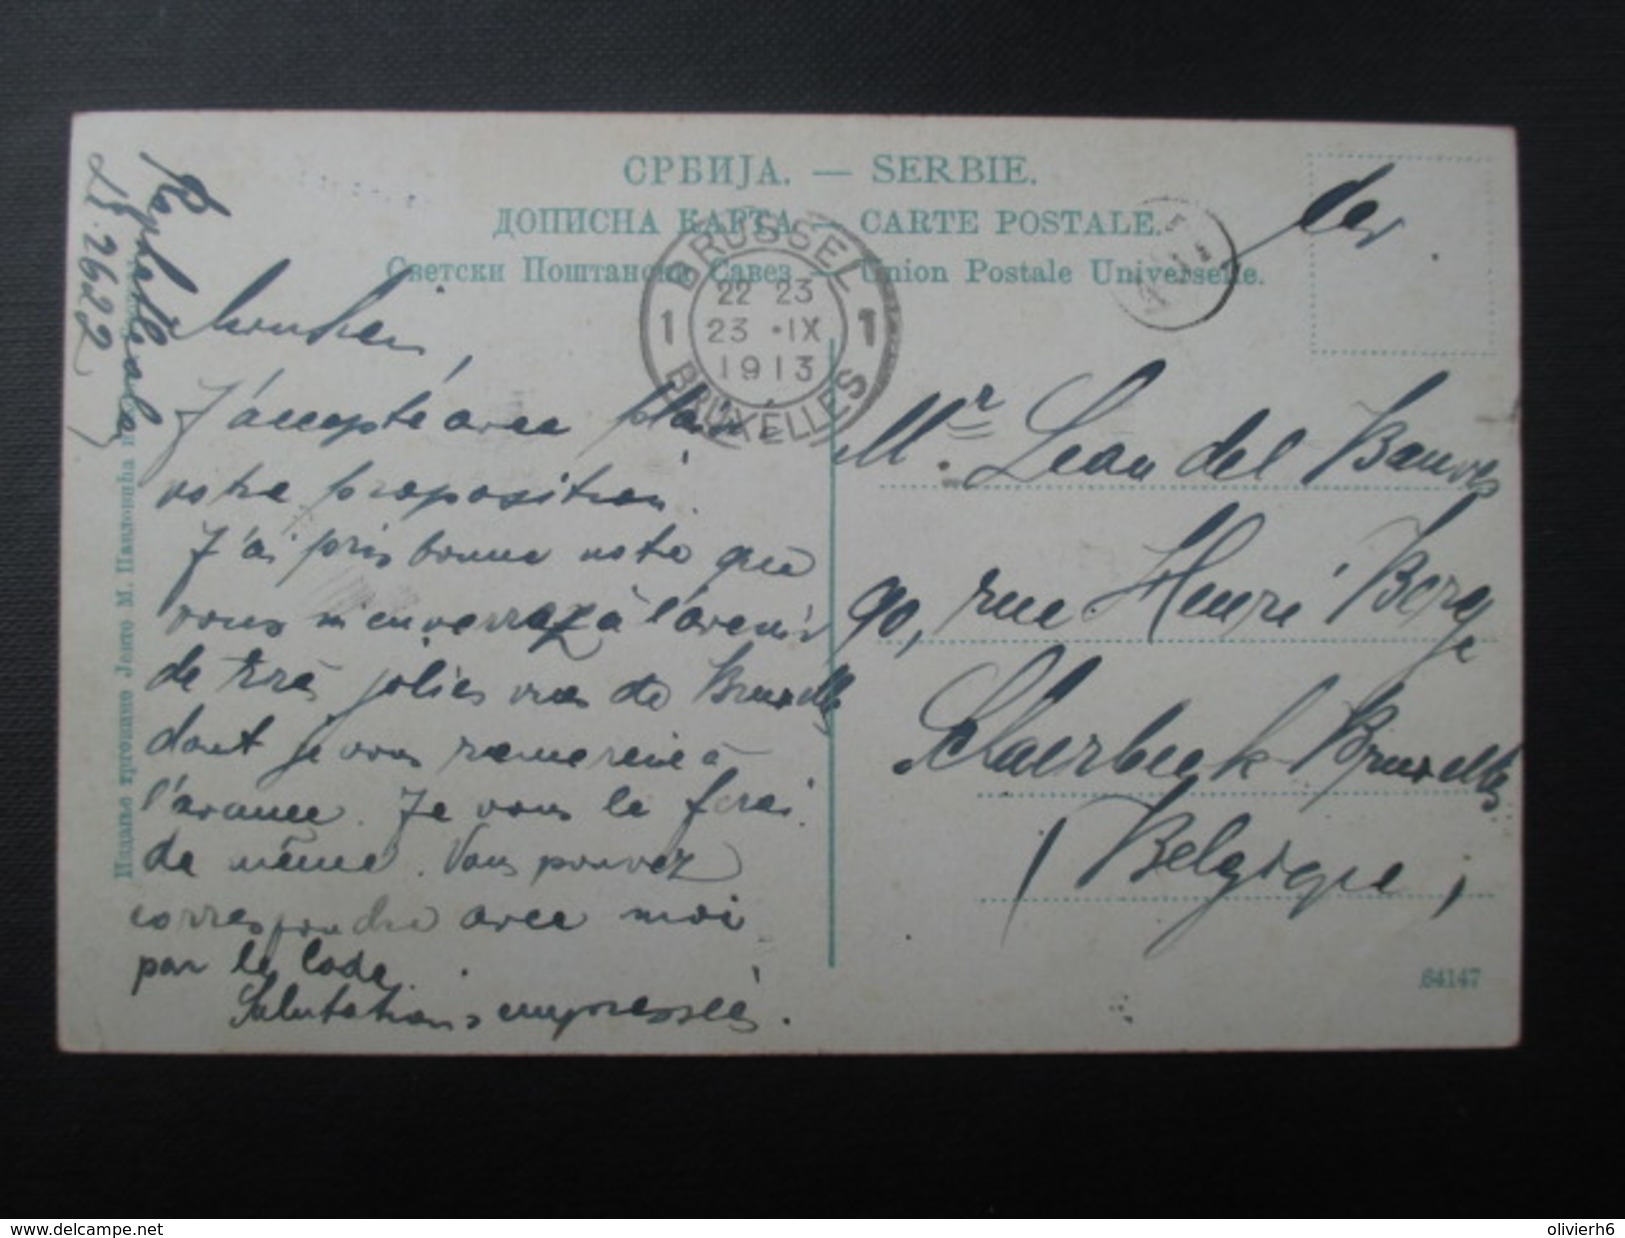 СРБИЈА. — SERBIE.
ДОПИСНА КАРТА — CARTE POSTALE.
Светски Поштански Савез — Union Postale Universelle.
BRUSSEL
1 22 23 1
23 · IX
1913
BRUXELLES
J'accepte avec plaisir
votre proposition.
J'ai pris bonne note que
vous m'enverrez à l'avenir
de très jolies vues de Bruxelles
dont je vous remercie à
l'avance. Je vous le ferai
de même. Vous pouvez
correspondre avec moi
par le Code.
Salutations empressées.
Mr. Léon del Bauves
90, rue Henri Berge
Schaerbeek-Bruxelles
(Belgique)
64147
26 22
Издање трговине Јефто М. Павловића
delcampe.net
olivierh6